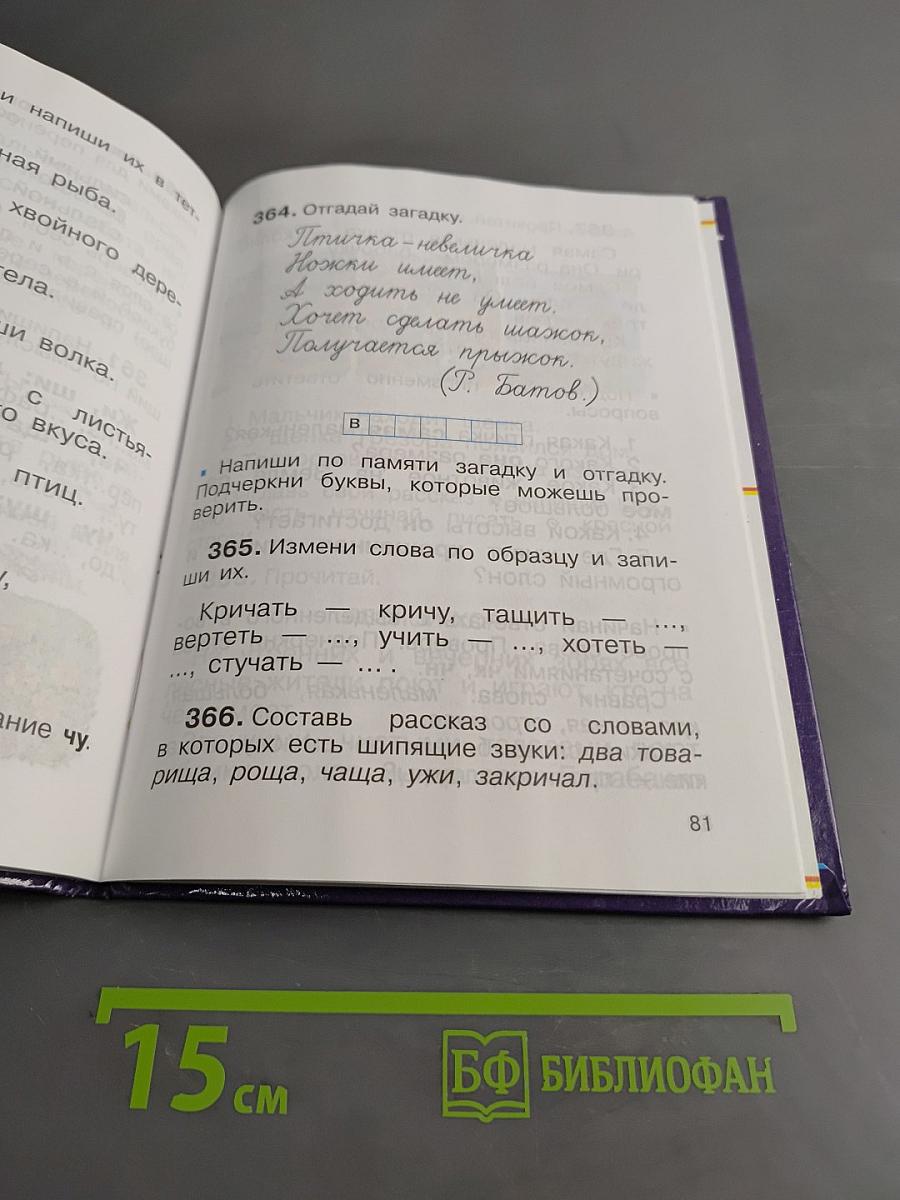 и напиши их в тет-
ная рыба.
хвойного дере-
тела.
ши волка.
с листья-
го вкуса.
птиц.
ание чу.
364. Отгадай загадку.
Птичка-невеличка
Ножки имеет,
А ходить не умеет.
Хочет сделать шажок,
Получается прыжок.
(Р. Батов.)
в
▪ Напиши по памяти загадку и отгадку.
Подчеркни буквы, которые можешь про-
верить.
365. Измени слова по образцу и запи-
ши их.
Кричать — кричу, тащить — ...,
вертеть — ..., учить — ..., хотеть —
..., стучать — ... .
366. Составь рассказ со словами,
в которых есть шипящие звуки: два това-
рища, роща, чаща, ужи, закричал.
81
15 см
БФ БИБЛИОФАН